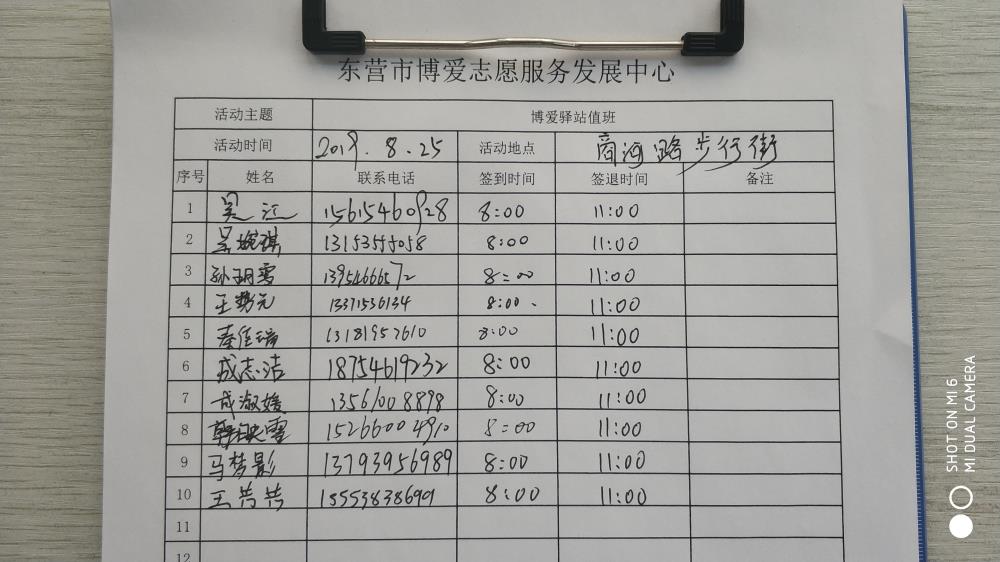 东营市博爱志愿服务发展中心
活动主题 博爱驿站值班
活动时间 2019.8.25 活动地点 商河路步行街
序号 姓名 联系电话 签到时间 签退时间 备注
1 吴江 15615460928 8:00 11:00
2 吴婉琪 13153555058 8:00 11:00
3 孙玥雪 13954666572 8:00 11:00
4 王势元 13371536134 8:00 11:00
5 秦佳瑞 13181957610 8:00 11:00
6 成志洁 18754619232 8:00 11:00
7 成淑媛 13561008898 8:00 11:00
8 韩映雪 15266004910 8:00 11:00
9 马梦影 13793956989 8:00 11:00
10 王芳芳 8:00 11:00
11
12
SHOT ON MI 6
MI DUAL CAMERA